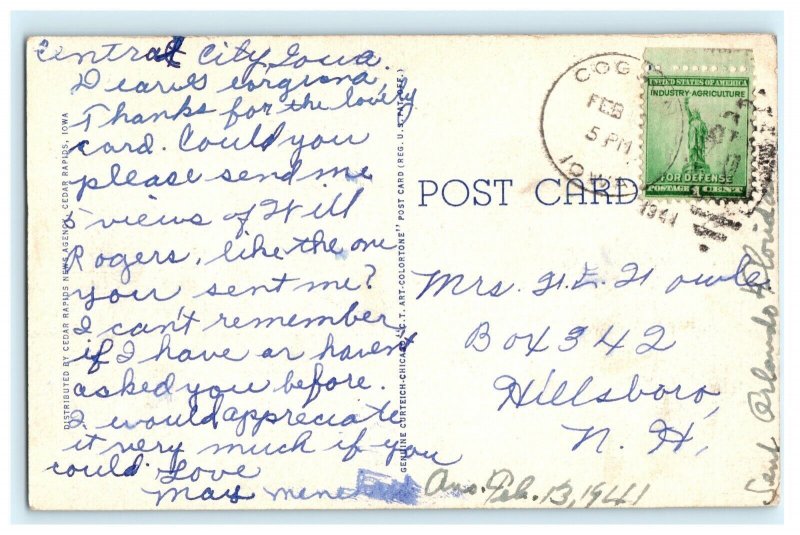 Central City, Iowa.
Dear Georgiana,
Thanks for the lovely
card. Could you
please send me
5 views of Will
Rogers, like the one
you sent me?
I can't remember
if I have or havent
asked you before.
I would appreciate
it very much if you
could. Love
May
DISTRIBUTED BY CEDAR RAPIDS NEWS AGENCY, CEDAR RAPIDS, IOWA
GENUINE CURTEICH-CHICAGO "C.T. ART-COLORTONE" POST CARD (REG. U.S. PAT. OFF.)
POST CARD
COGG
FEB
5 PM
IOWA
1941
UNITED STATES OF AMERICA
INDUSTRY·AGRICULTURE
FOR DEFENSE
POSTAGE 1 CENT
Mrs. H. E. Fowle
Box 342
Hillsboro,
N. H.
Ans. Feb. 13, 1941
Sent Orlando Florida